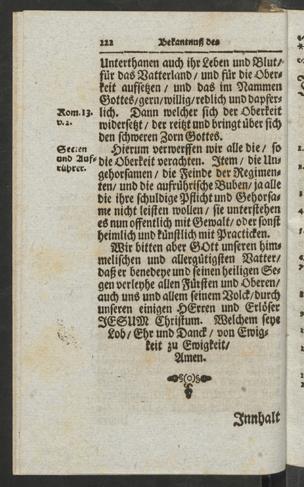 222 Bekantnuß des
Unterthanen auch ihr Leben und Blut/
für das Vatterland / und für die Ober-
keit aufsetzen / und das im Nammen
Gottes/gern/willig/redlich und dapfer-
Rom. 13.
v. 2.
lich. Dann welcher sich der Oberkeit
widersetzt / der reitzt und bringt über sich
den schweren Zorn Gottes.
Secten
und Auf-
rührer.
Hierum verwerffen wir alle die / so
die Oberkeit verachten. Item / die Un-
gehorsamen / die Feinde der Regimen-
ten/ und die aufrührische Buben/ ja alle
die ihre schuldige Pflicht und Gehorsa-
me nicht leisten wollen / sie unterstehen
es nun offentlich mit Gewalt/ oder sonst
heimlich und künstlich mit Practicken.
Wir bitten aber GOtt unseren him-
melischen und allergütigsten Vatter/
daß er benedeye und seinen heiligen Se-
gen verleyhe allen Fürsten und Oberen/
auch uns und allem seinem Volck/durch
unseren einigen HErren und Erlöser
JESUM Christum. Welchem seye
Lob/ Ehr und Danck / von Ewig-
keit zu Ewigkeit/
Amen.
Innhalt